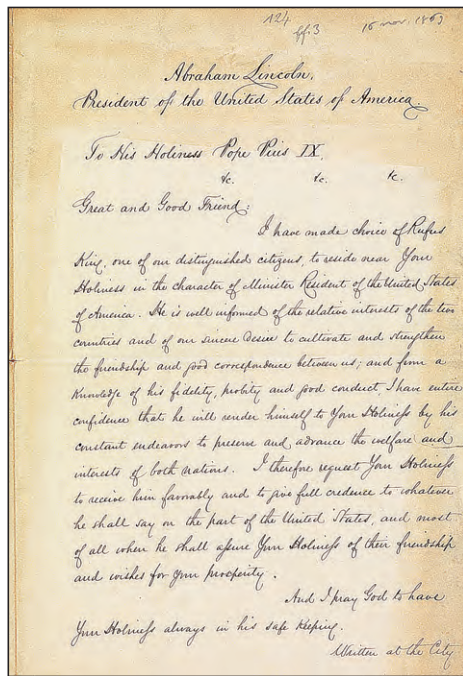 124
ff. 3
16 nov. 1863
Abraham Lincoln,
President of the United States of America.
To His Holiness Pope Pius IX,
&c. &c. &c.
Great and Good Friend:
I have made choice of Rufus
King, one of our distinguished citizens, to reside near Your
Holiness in the character of Minister Resident of the United States
of America. He is well informed of the relative interests of the two
countries and of our sincere desire to cultivate and strengthen
the friendship and good correspondence between us; and from a
knowledge of his fidelity, probity and good conduct, I have entire
confidence that he will render himself to Your Holiness by his
constant endeavors to preserve and advance the welfare and
interests of both nations. I therefore request Your Holiness
to receive him favorably and to give full credence to whatever
he shall say on the part of the United States, and most
of all when he shall assure Your Holiness of their friendship
and wishes for your prosperity.
And I pray God to have
Your Holiness always in his safe keeping.
Written at the City